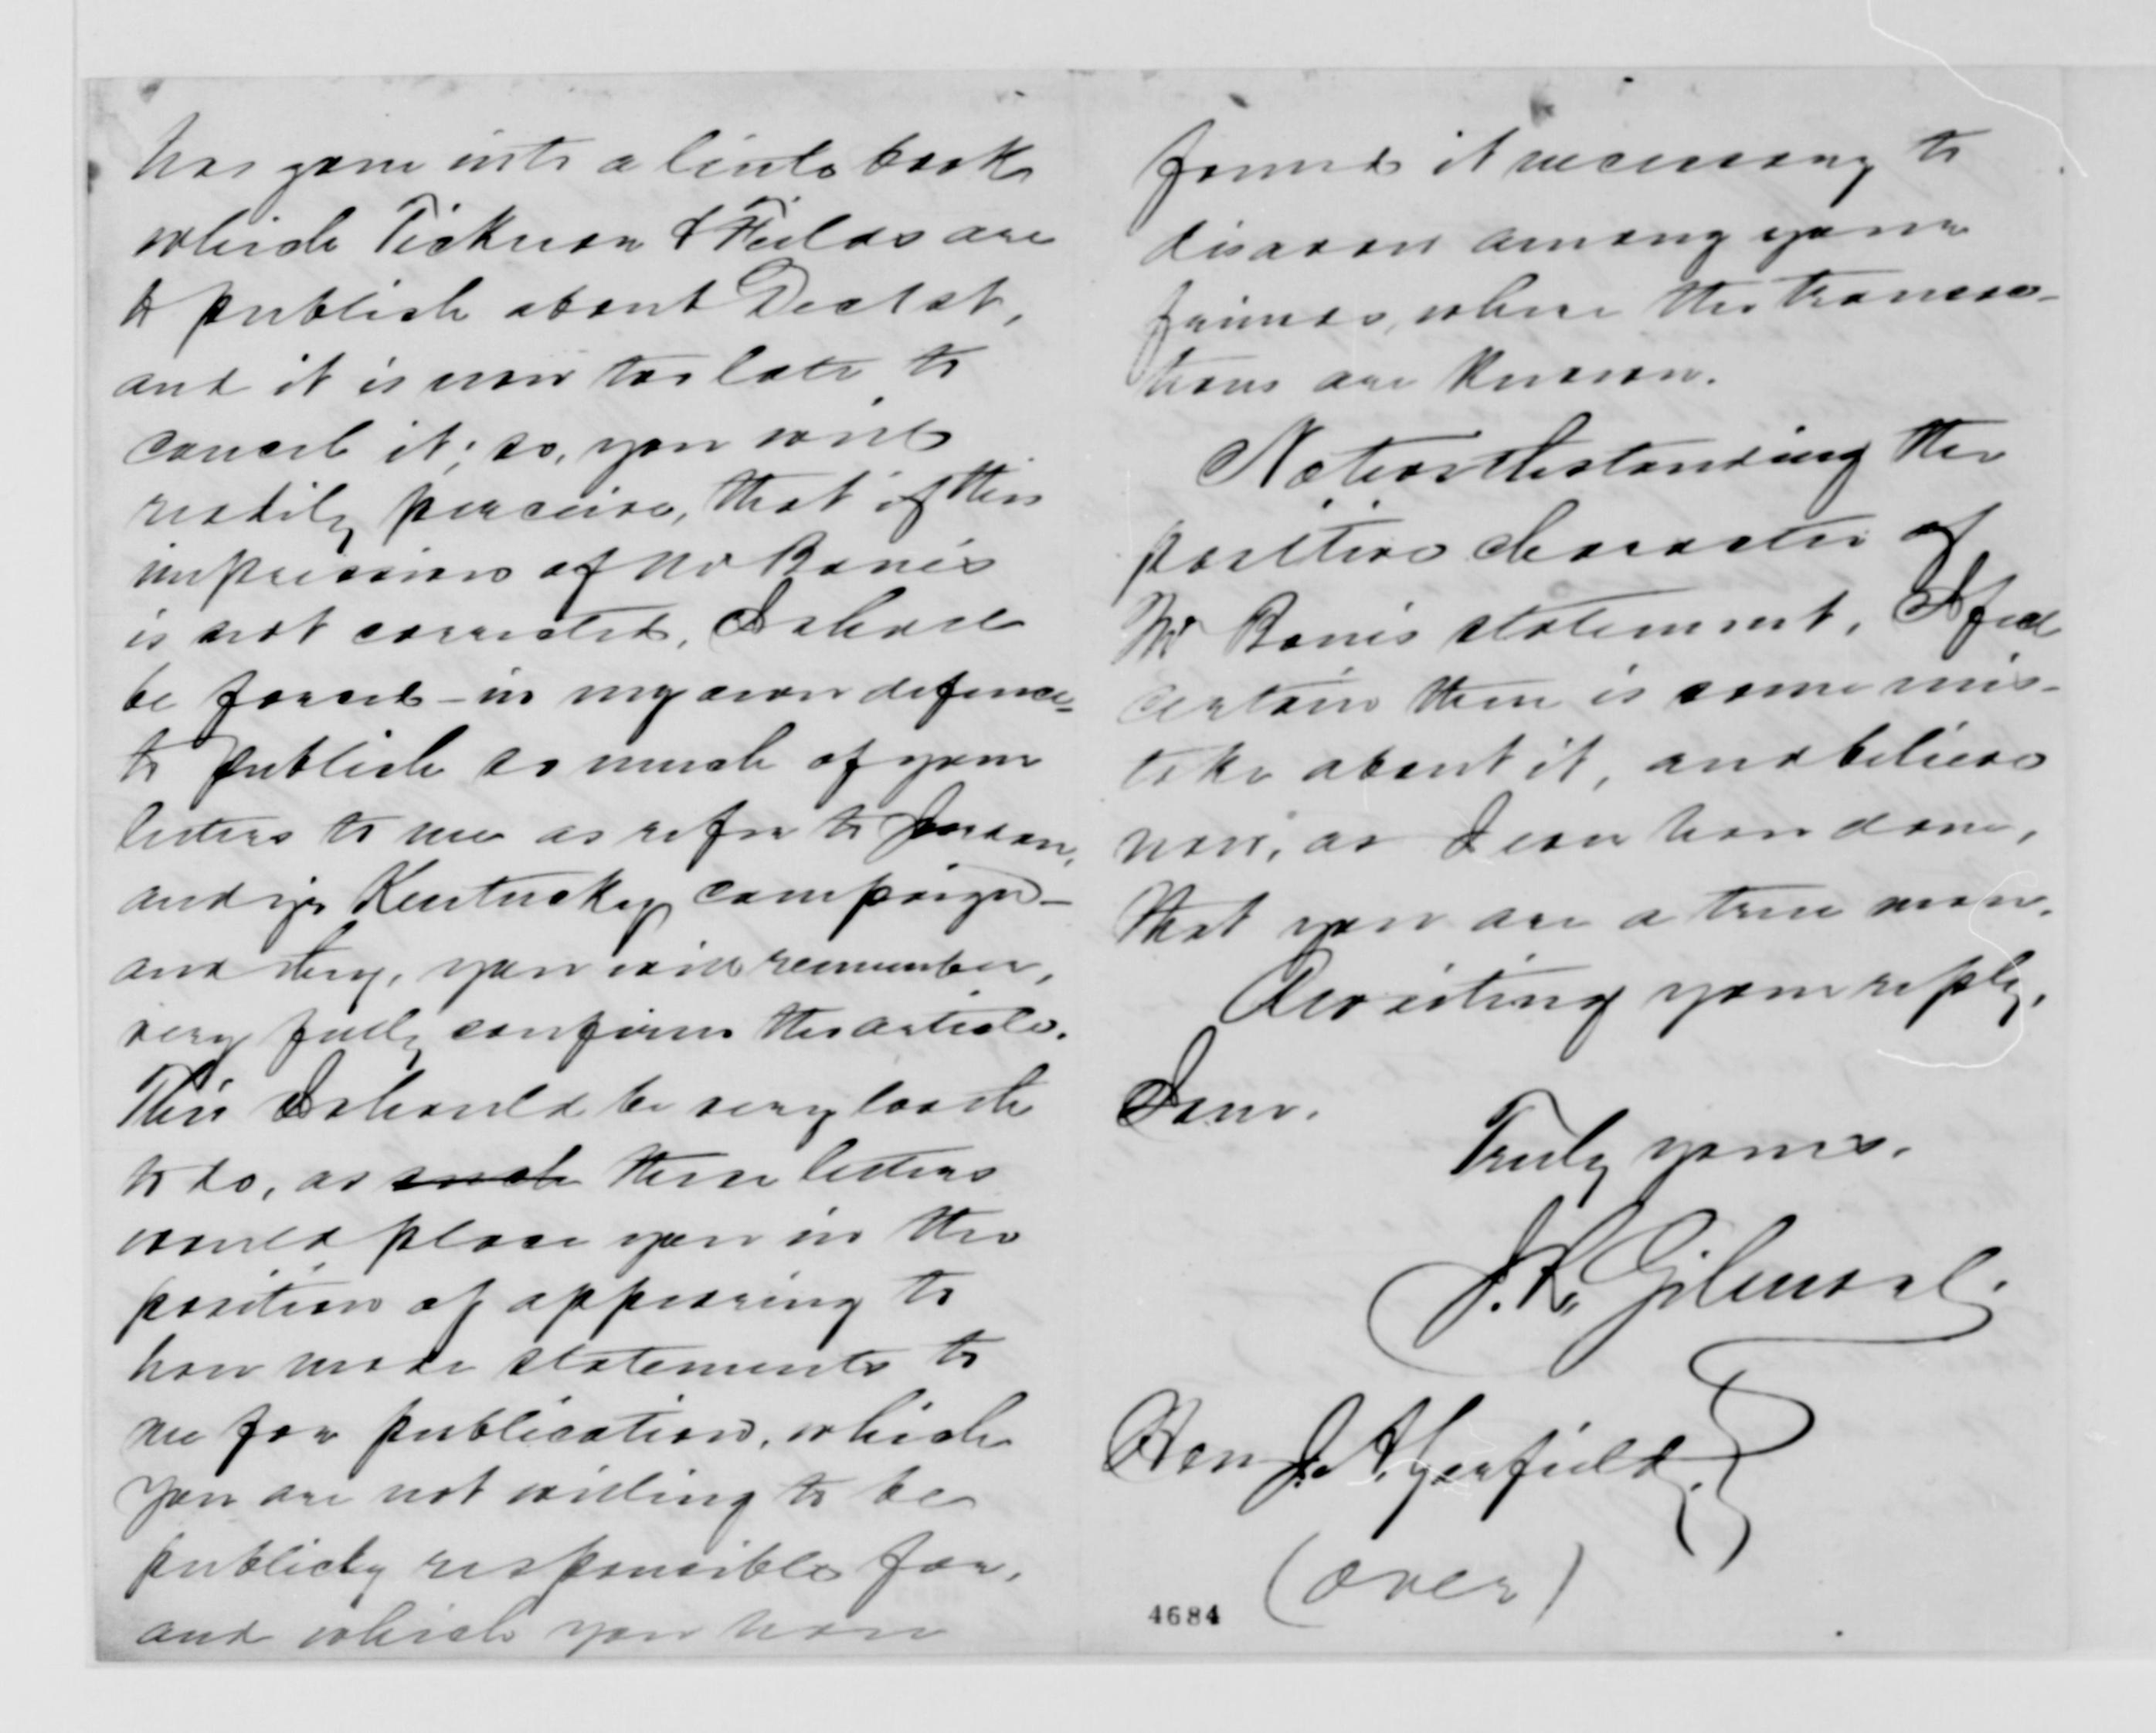 has gone into a little book
which Ticknor & Fields are
to publish about Dectst,
and it is now too late to
cancel it; so, you will
readily perceive, that if this
impression of Mr Bone's
is not corrected, I shall
be forced – in my own defence –
to publish so much of your
letters to me as refer to Jordan,
and yr Kentucky campaign –
and they, you will remember,
very fully confirm the article.
This I should be very loath
to do, as such these letters
would place you in the
position of appearing to
have made statements to
me for publication, which
you are not willing to be
publicly responsible for,
and which you have
found it necessary to
disavow among your
friends, where the transac-
tions are known.
Notwithstanding the
positive character of
Mr Bone's statement, I feel
certain there is some mis-
take about it, and believe
now, as I ever have done,
that you are a true man.
Awaiting your reply,
I am,
Truly yours,
J. R. Gilmore.
Hon J. A. Garfield.
(over)
4684